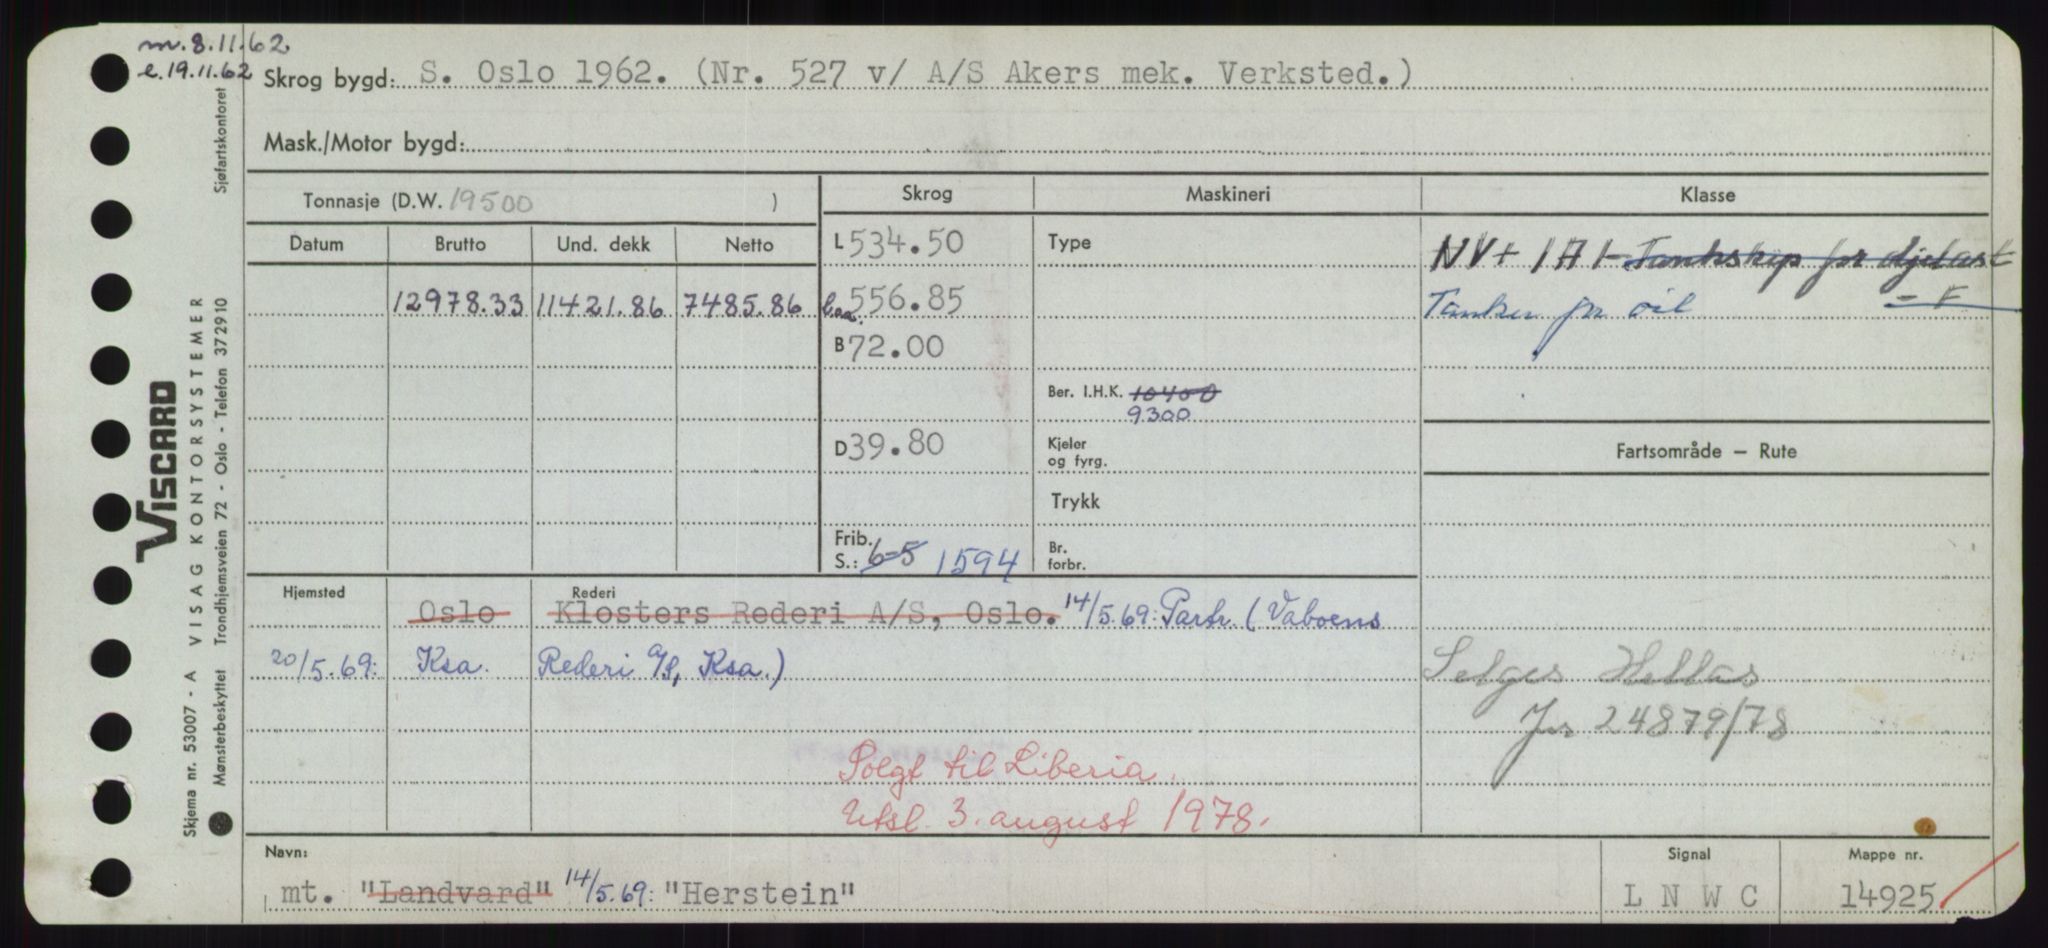 m. 8.11.62
e. 19.11.62
Skrog bygd: S. Oslo 1962. (Nr. 527 v/ A/S Akers mek. Verksted.)
Mask./Motor bygd:
Tonnasje (D.W. 19500 )
Skrog
Maskineri
Klasse
Datum
Brutto
Und. dekk
Netto
L 534.50
Type
NV+ 1A1- Tankskip for oljelast
12978.33
11421.86
7485.86
Loa. 556.85
Tanker for oil
- F
B 72.00
Ber. I.H.K. 10400
9300
D 39.80
Kjeler
og fyrg.
Fartsområde – Rute
Trykk
Frib.
S.: 6-5 1594
Br.
forbr.
Hjemsted
Rederi
Oslo
Klosters Rederi A/S, Oslo. 14/5.69: Partr. (Vaboens
20/5.69: Ksa. Rederi A/S, Ksa.)
Selges Hellas
Jnr 24879/78
Solgt til Liberia.
Utsl. 3. august 1978.
Navn:
mt. "Landvard" 14/5.69: "Herstein"
Signal
L N W C
Mappe nr.
14925
VISCARD
VISAG KONTORSYSTEMER
Skjema nr. 53007 - A
Mønsterbeskyttet
Trondhjemsveien 72 - Oslo - Telefon 372910
Sjøfartskontoret